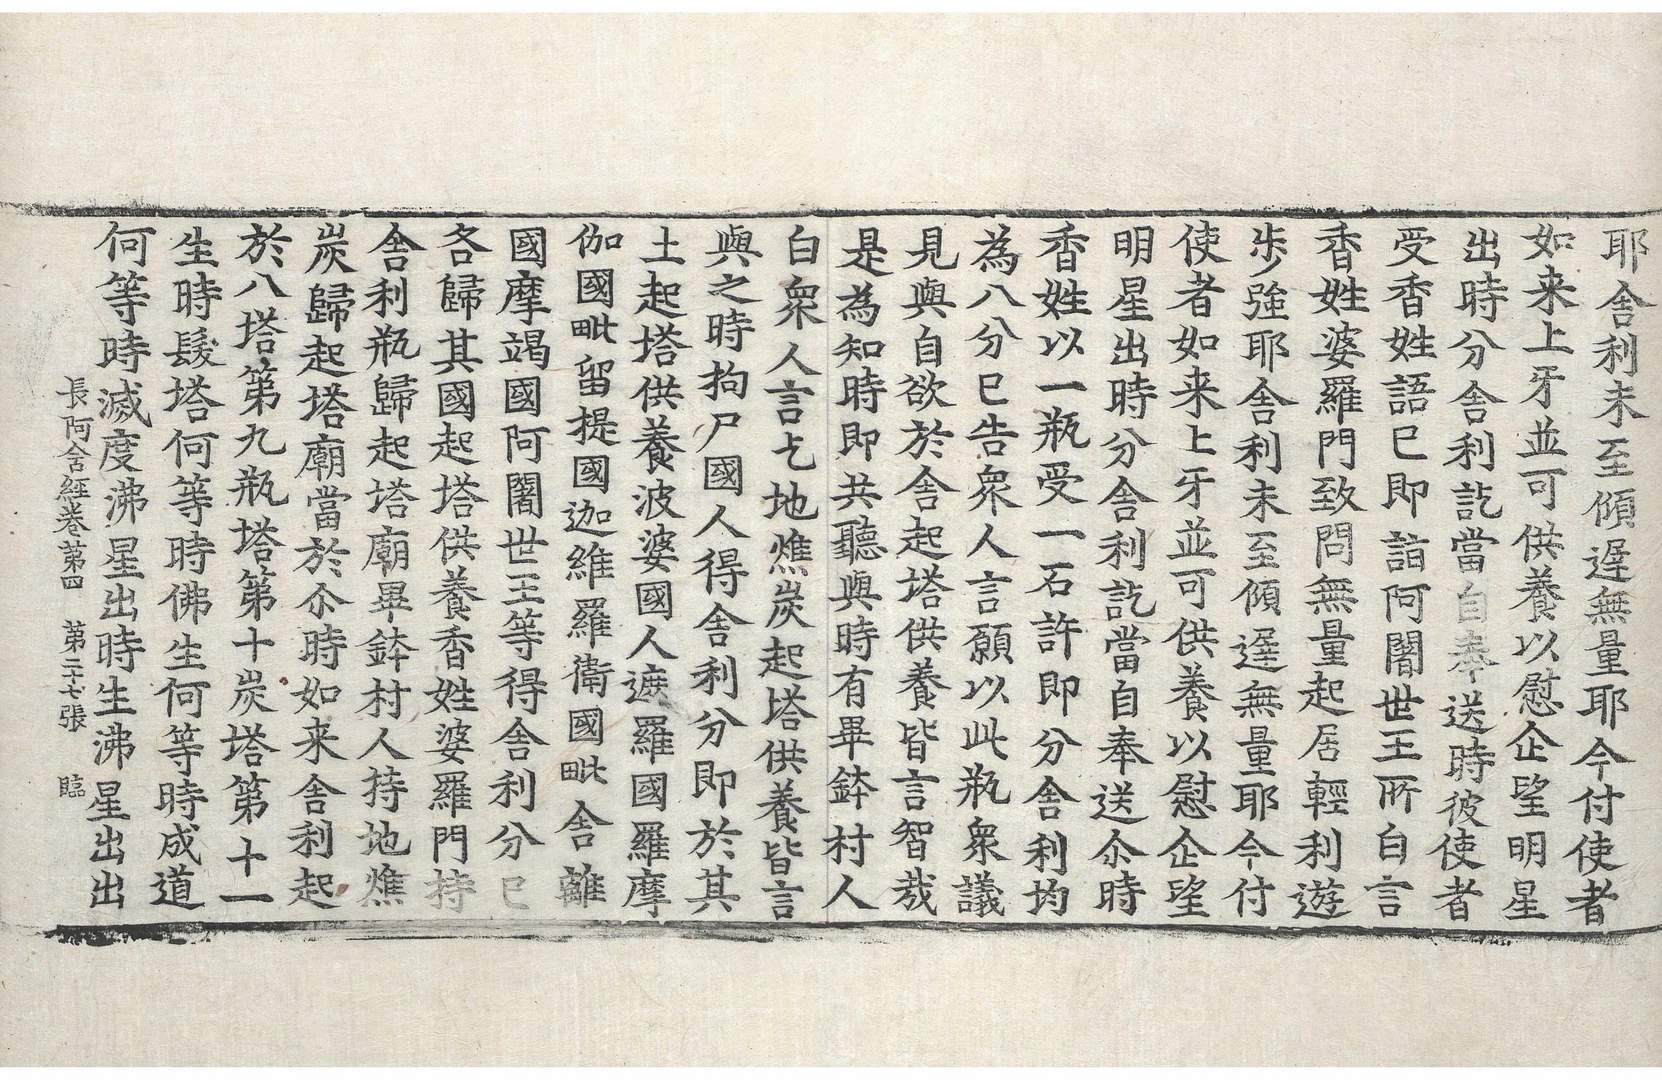 耶舍利未至傾遲無量耶今付使者
如来上牙並可供養以慰企望明星
出時分舍利訖當自奉送時彼使者
受香姓語已即詣阿闍世王所白言
香姓婆羅門致問無量起居輕利遊
步強耶舍利未至傾遲無量耶今付
使者如来上牙並可供養以慰企望
明星出時分舍利訖當自奉送尒時
香姓以一瓶受一石許即分舍利均
為八分已告衆人言願以此瓶衆議
見與自欲於舍起塔供養皆言智哉
是為知時即共聽與時有畢鉢村人
白衆人言乞地燋炭起塔供養皆言
與之時拘尸國人得舍利分即於其
土起塔供養波婆國人遮羅國羅摩
伽國毗留提國迦維羅衛國毗舍離
國摩竭國阿闍世王等得舍利分已
各歸其國起塔供養香姓婆羅門持
舍利瓶歸起塔廟畢鉢村人持地燋
炭歸起塔廟當於尒時如来舍利起
於八塔第九瓶塔第十炭塔第十一
生時髮塔何等時佛生何等時成道
何等時滅度沸星出時生沸星出出
長阿含經卷第四 第二十七張 臨